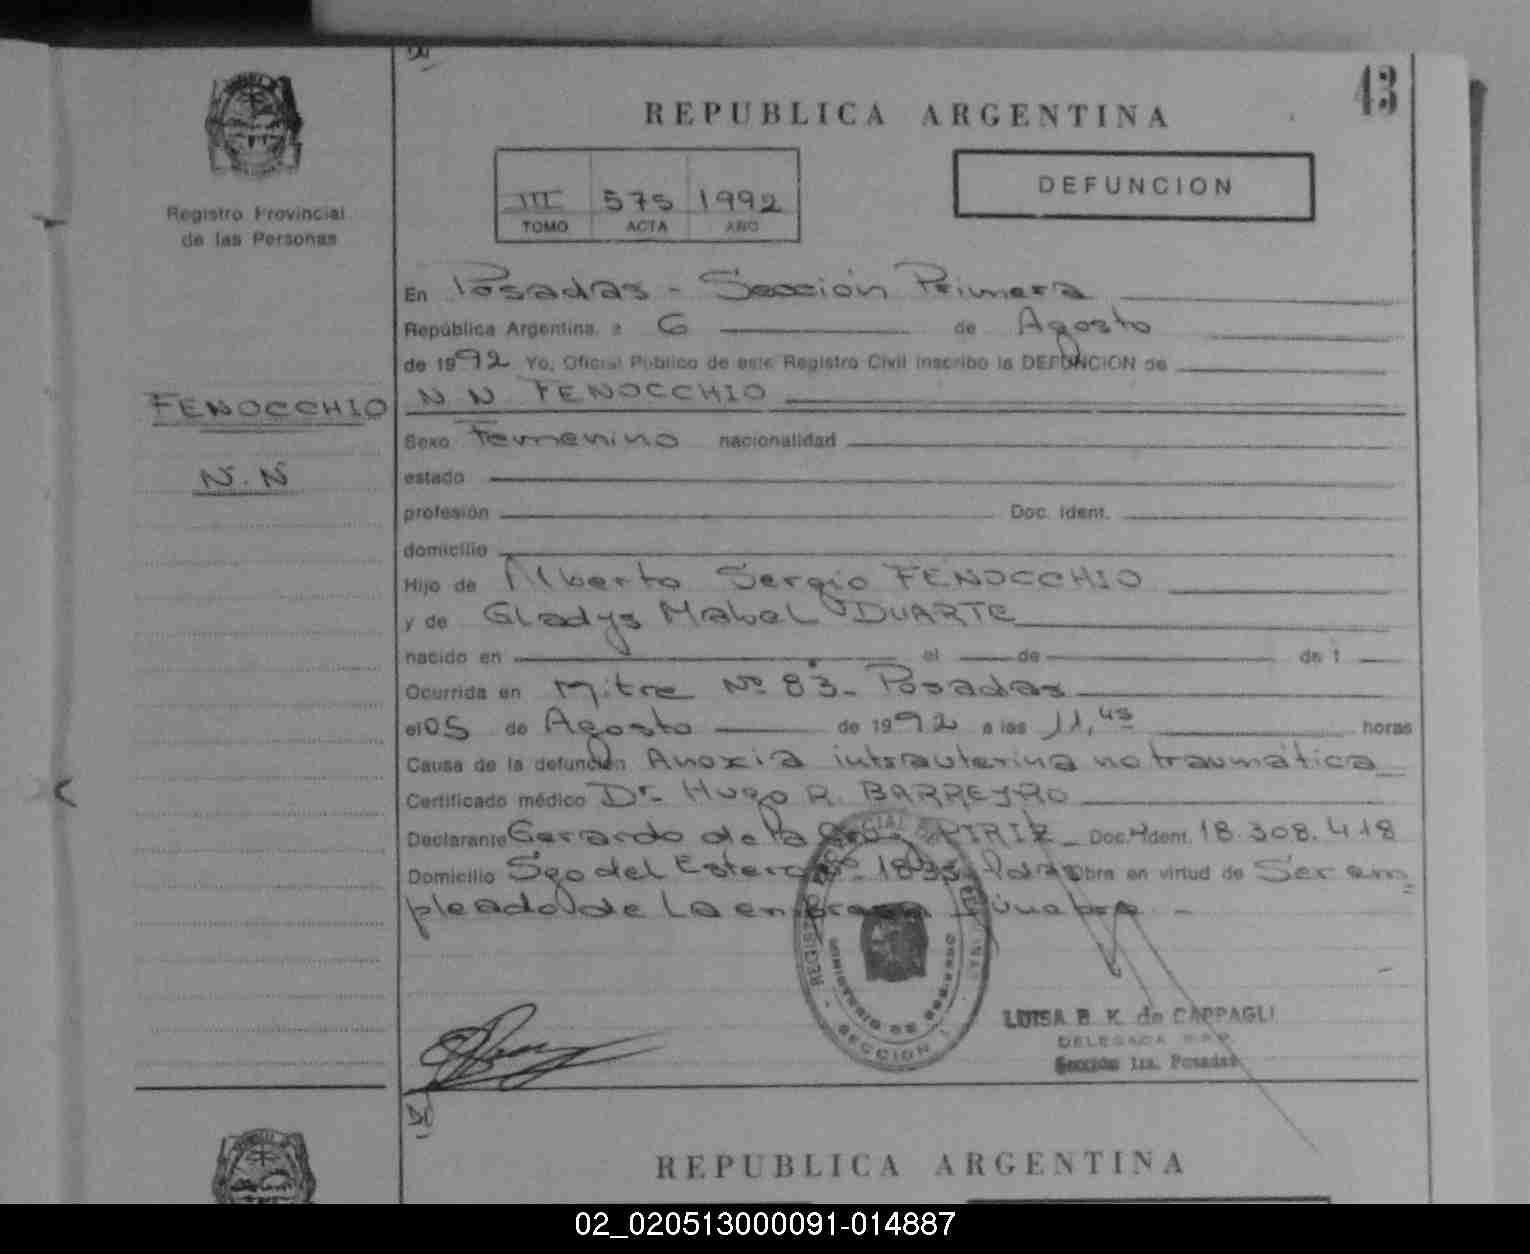 43
REPUBLICA ARGENTINA
DEFUNCION
III 575 1992
TOMO ACTA AÑO
Registro Provincial
de las Personas
FENOCCHIO
N.N
En Posadas - Sección Primera
República Argentina, a 6 de Agosto
de 1992 Yo, Oficial Público de este Registro Civil inscribo la DEFUNCION de
N N FENOCCHIO
Sexo Femenino nacionalidad
estado
profesión Doc. Ident.
domicilio
Hijo de Alberto Sergio FENOCCHIO
y de Gladys Mabel DUARTE
nacido en el de de 1
Ocurrida en Mitre Nº 83- Posadas
el 05 de Agosto de 1992 a las 11,45 horas
Causa de la defunción Anoxia intrauterina no traumática
Certificado médico Dr. Hugo R. BARREYRO
Declarante Gerardo de la PIRIZ - Doc. Ident. 18.308.418
Domicilio Sgo del Estero 1835 Obra en virtud de Ser em=
pleado de la empresa fúnebre. -
REGISTRO PROVINCIAL DE LAS PERSONAS
MINISTERIO DE GOBIERNO
- SECCION 1 -
LUISA B. K. de CAPPAGLI
DELEGADA R.P.P.
Sección 1ra. Posadas
REPUBLICA ARGENTINA
02_020513000091-014887